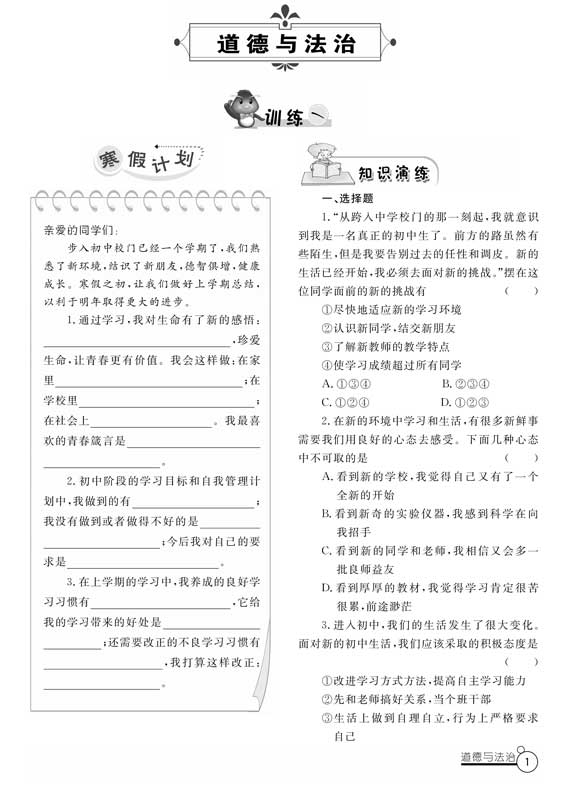 道德与法治
训练一
寒假计划
亲爱的同学们:
步入初中校门已经一个学期了,我们熟
悉了新环境,结识了新朋友,德智俱增,健康
成长。寒假之初,让我们做好上学期总结,
以利于明年取得更大的进步。
1.通过学习,我对生命有了新的感悟:
,珍爱
生命,让青春更有价值。我会这样做:在家
里;在
学校里;
在社会上。我最喜
欢的青春箴言是
。
2.初中阶段的学习目标和自我管理计
划中,我做到的有;
我没有做到或者做得不好的是
;今后我对自己的要
求是。
3.在上学期的学习中,我养成的良好学
习习惯有,它给
我的学习带来的好处是
;还需要改正的不良学习习惯有
,我打算这样改正:
。
知识演练
一、选择题
1.“从跨入中学校门的那一刻起,我就意识
到我是一名真正的初中生了。前方的路虽然有
些陌生,但是我要告别过去的任性和调皮。新的
生活已经开始,我必须去面对新的挑战。”摆在这
位同学面前的新的挑战有 ( )
①尽快地适应新的学习环境
②认识新同学,结交新朋友
③了解新教师的教学特点
④使学习成绩超过所有同学
A.①③④ B.②③④
C.①②④ D.①②③
2.在新的环境中学习和生活,有很多新鲜事
需要我们用良好的心态去感受。下面几种心态
中不可取的是 ( )
A.看到新的学校,我觉得自己又有了一个
全新的开始
B.看到新奇的实验仪器,我感到科学在向
我招手
C.看到新的同学和老师,我相信又会多一
批良师益友
D.看到厚厚的教材,我觉得学习肯定很苦
很累,前途渺茫
3.进入初中,我们的生活发生了很大变化。
面对新的初中生活,我们应该采取的积极态度是
( )
①改进学习方式方法,提高自主学习能力
②先和老师搞好关系,当个班干部
③生活上做到自理自立,行为上严格要求
自己
道德与法治 1